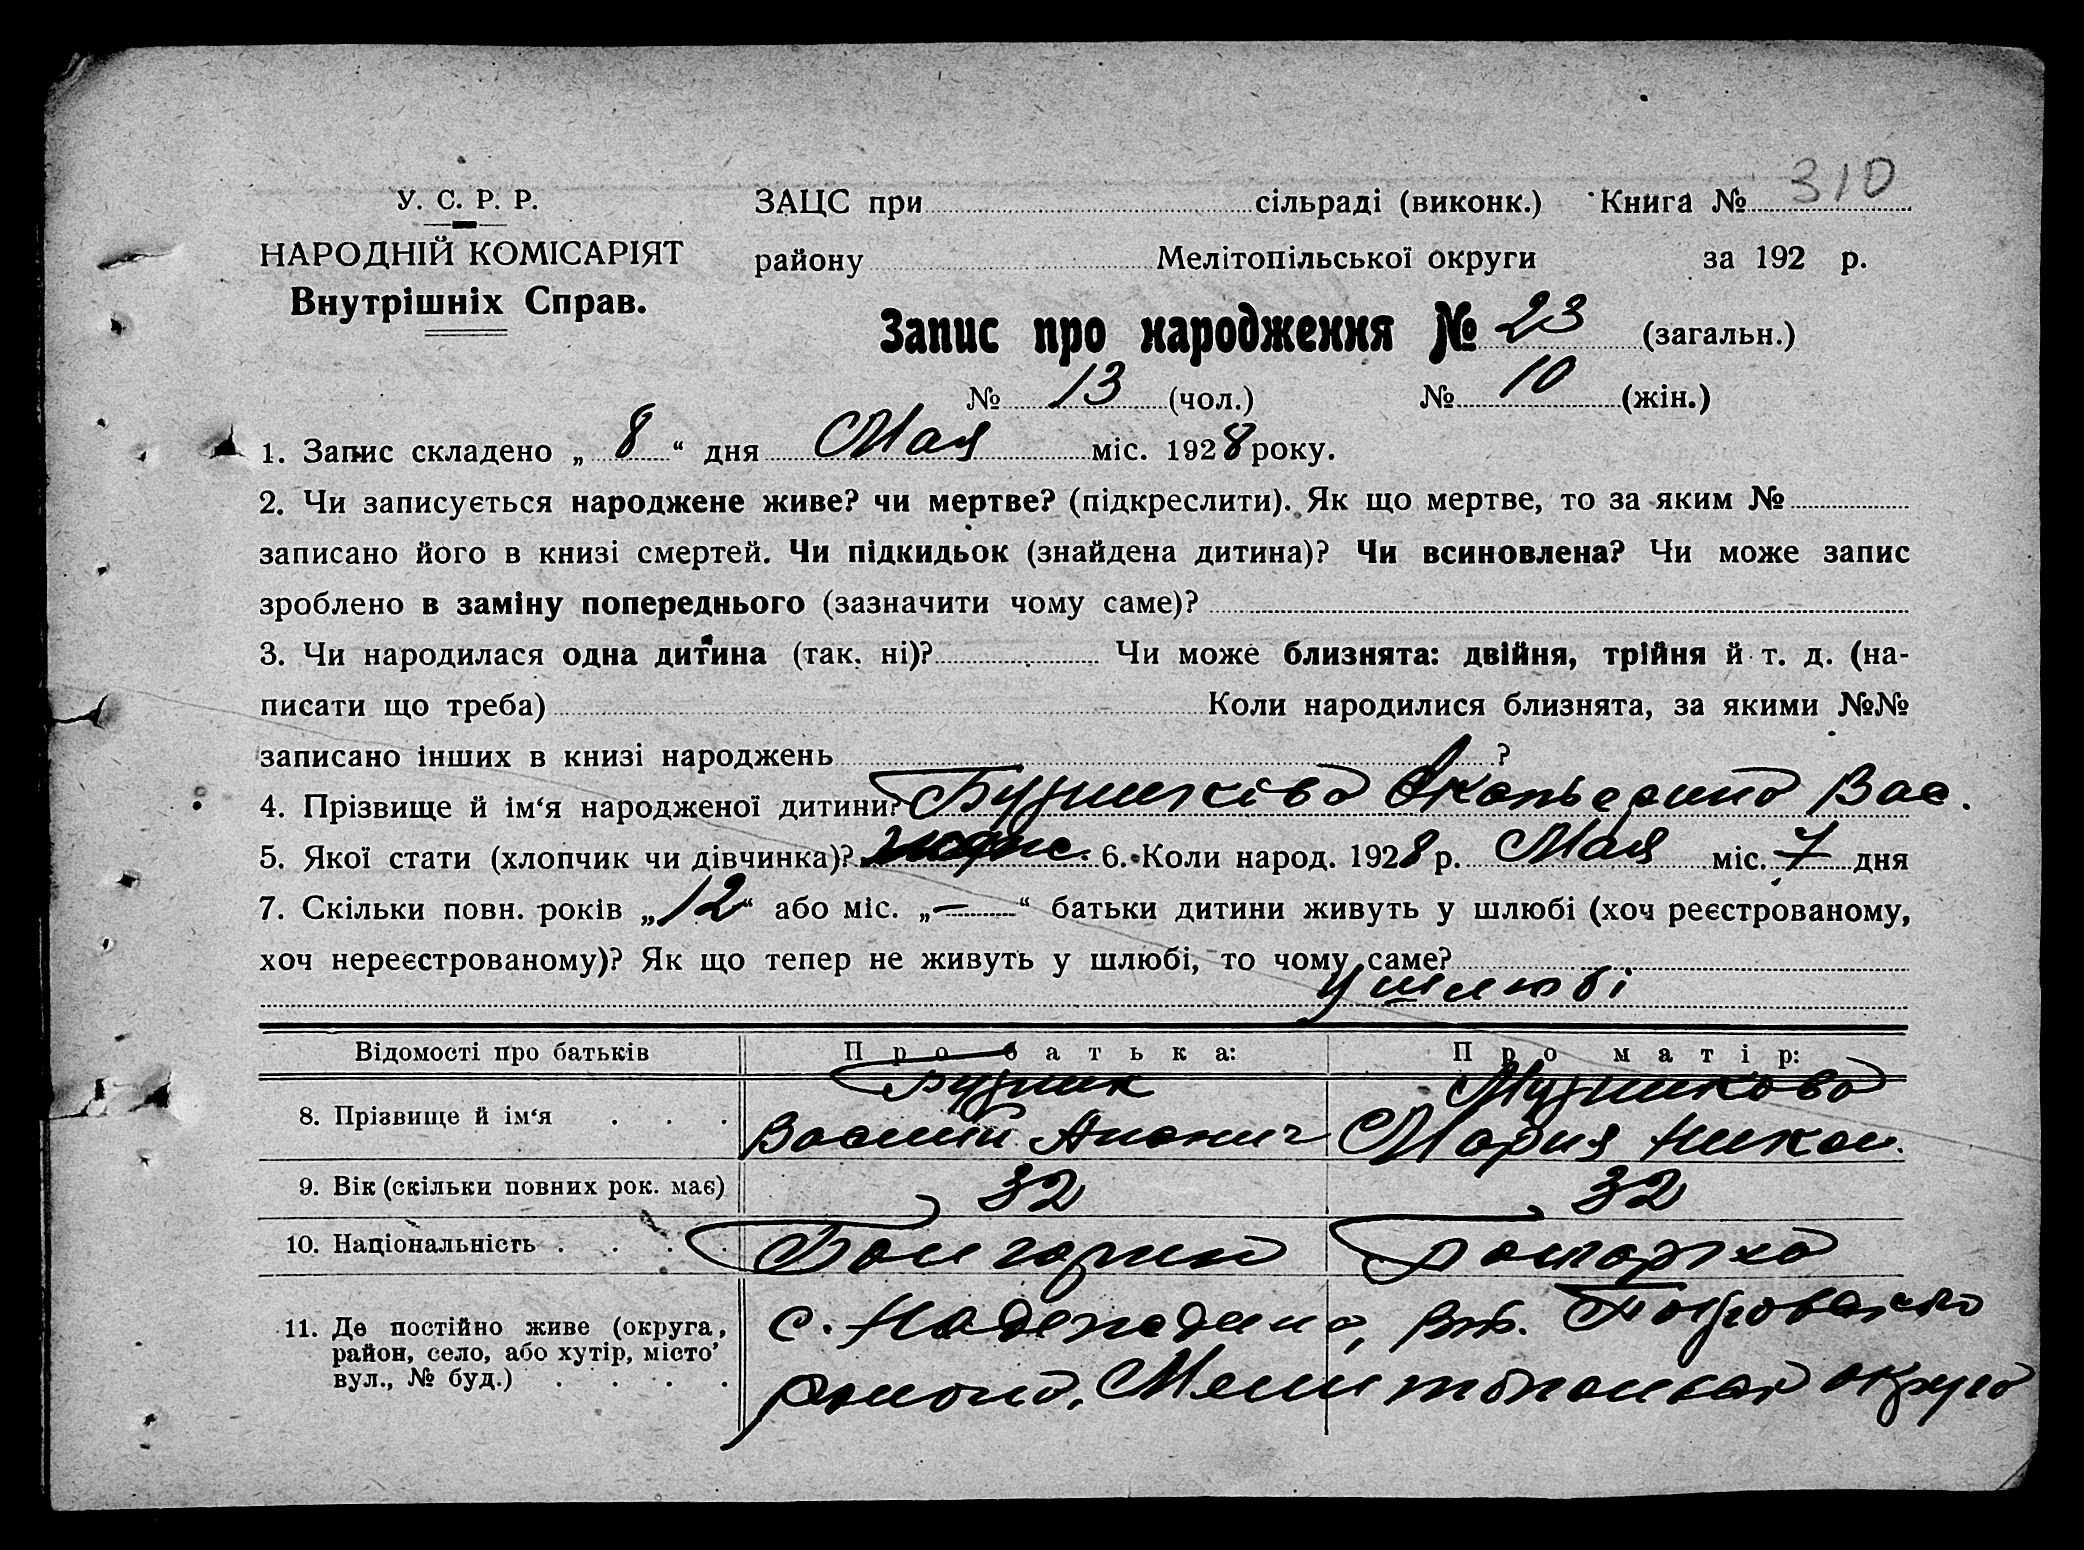 310
У. С. Р. Р.
ЗАЦС при сільраді (виконк.) Книга №
НАРОДНІЙ КОМІСАРІЯТ
району Мелітопільської округи за 192 р.
Внутрішніх Справ.
Запис про народження № 23 (загальн.)
№ 13 (чол.) № 10 (жін.)
1. Запис складено „ 8 “ дня Мая міс. 1928 року.
2. Чи записується народжене живе? чи мертве? (підкреслити). Як що мертве, то за яким №
записано його в книзі смертей. Чи підкидьок (знайдена дитина)? Чи всиновлена? Чи може запис
зроблено в заміну попереднього (зазначити чому саме)?
3. Чи народилася одна дитина (так, ні)? Чи може близнята: двійня, трійня й т. д. (на-
писати що треба) Коли народилися близнята, за якими №№
записано інших в книзі народжень ?
4. Прізвище й ім‘я народженої дитини? Вас.
5. Якої стати (хлопчик чи дівчинка)? 6. Коли народ. 1928 р. Мая міс. 7 дня
7. Скільки повн. років „12“ або міс. „—“ батьки дитини живуть у шлюбі (хоч реєстрованому,
хоч нереєстрованому)? Як що тепер не живуть у шлюбі, то чому саме?
у шлюбі
Відомості про батьків Про батька: Про матір:
8. Прізвище й ім‘я . . .
Мария Никол.
9. Вік (скільки повних рок. має) 32 32
10. Національність . . . . Болгарин Болгарка
11. Де постійно живе (округа, с. Надеждино, Покровского
район, село, або хутір, місто’
вул., № буд.) . . . . района, Мелитопольской округи